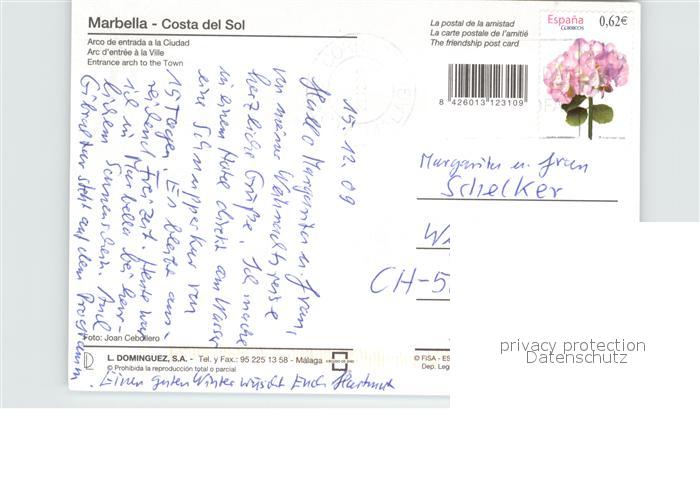 Marbella - Costa del Sol
Arco de entrada a la Ciudad
Arc d'entrée à la Ville
Entrance arch to the Town
La postal de la amistad
La carte postale de l'amitié
The friendship post card
España 0,62€
CORREOS
8 426013 123109
15.12.09
Hallo Margarita u. Fran,
von meiner Weihnachtsreise
herzliche Grüße. Ich mache
in einem Hotel direkt am Wasser
eine Schnupperkur von
15 Tagen. Es bleibt aus-
reichend Freizeit. Heute war
ich in Marbella bei herr-
lichem Sonnenschein. Auch
Gibraltar steht auf dem Programm.
Einen guten Winter wünscht Euch Hartmut
Margarita u. Fran
Schelker
W
CH-5
Foto: Joan Cebollero
L. DOMINGUEZ, S.A. - Tel. y Fax.: 95 225 13 58 - Málaga
© Prohibida la reproducción total o parcial
© FISA - ES
Dep. Leg
privacy protection
Datenschutz